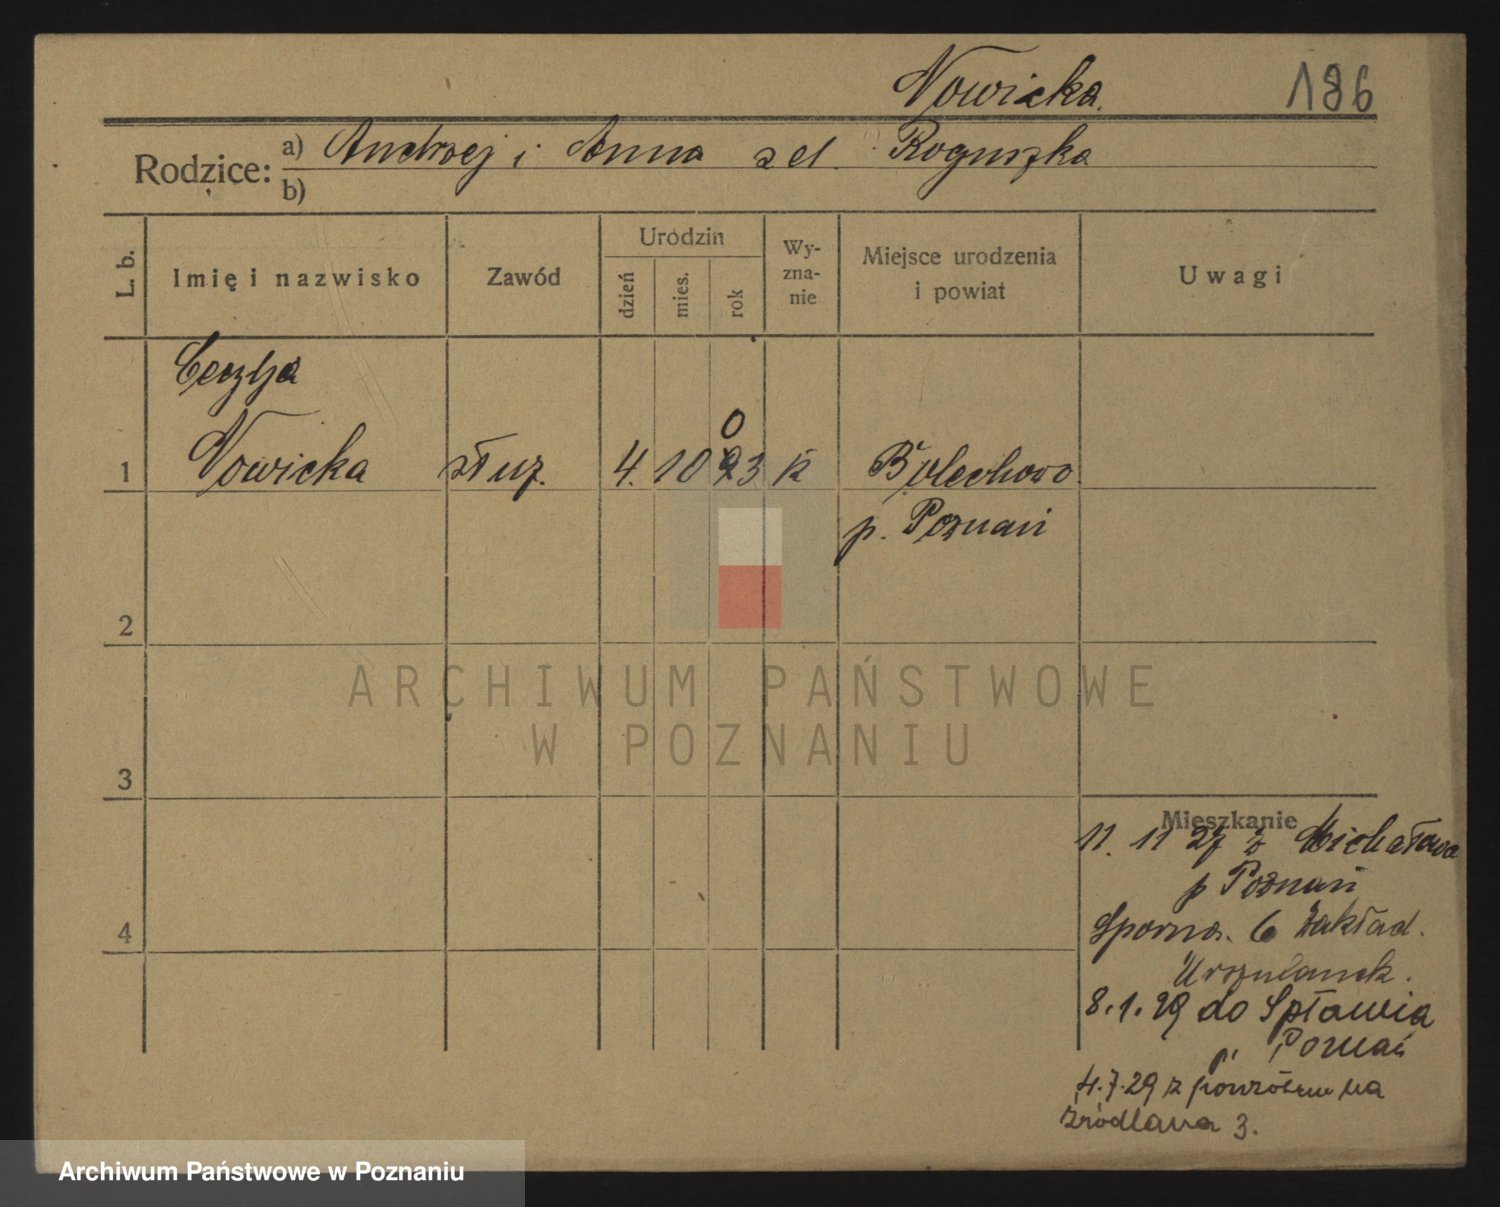 Nowicka. 186
Rodzice: a) Andrzej i Anna zd. Roguszka
b)
L. b. Imię i nazwisko Zawód Urodzin dzień mies. rok Wy-zna-nie Miejsce urodzenia i powiat Uwagi
Nowicka służ. 4. 10 03 k Bolechowo
1
p. Poznań
2
ARCHIWUM PAŃSTWOWE
W POZNANIU
3
Mieszkanie
11. 11 27 z Michałowa
p Poznań
4
Sporna. 6 Zakład.
Urszulanek.
8.1.29 do Spławia
p. Poznań
4.7.29 z powrotem na
Źródlana 3.
Archiwum Państwowe w Poznaniu